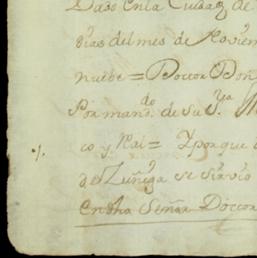 Dado en la Ciudad de
dias del mes de Noviem
nuebe = Doctor Don
Por mando. de su Sª.
co y Rai = Y porque
de Zuñiga se sirvio
en dha Señor Doctor